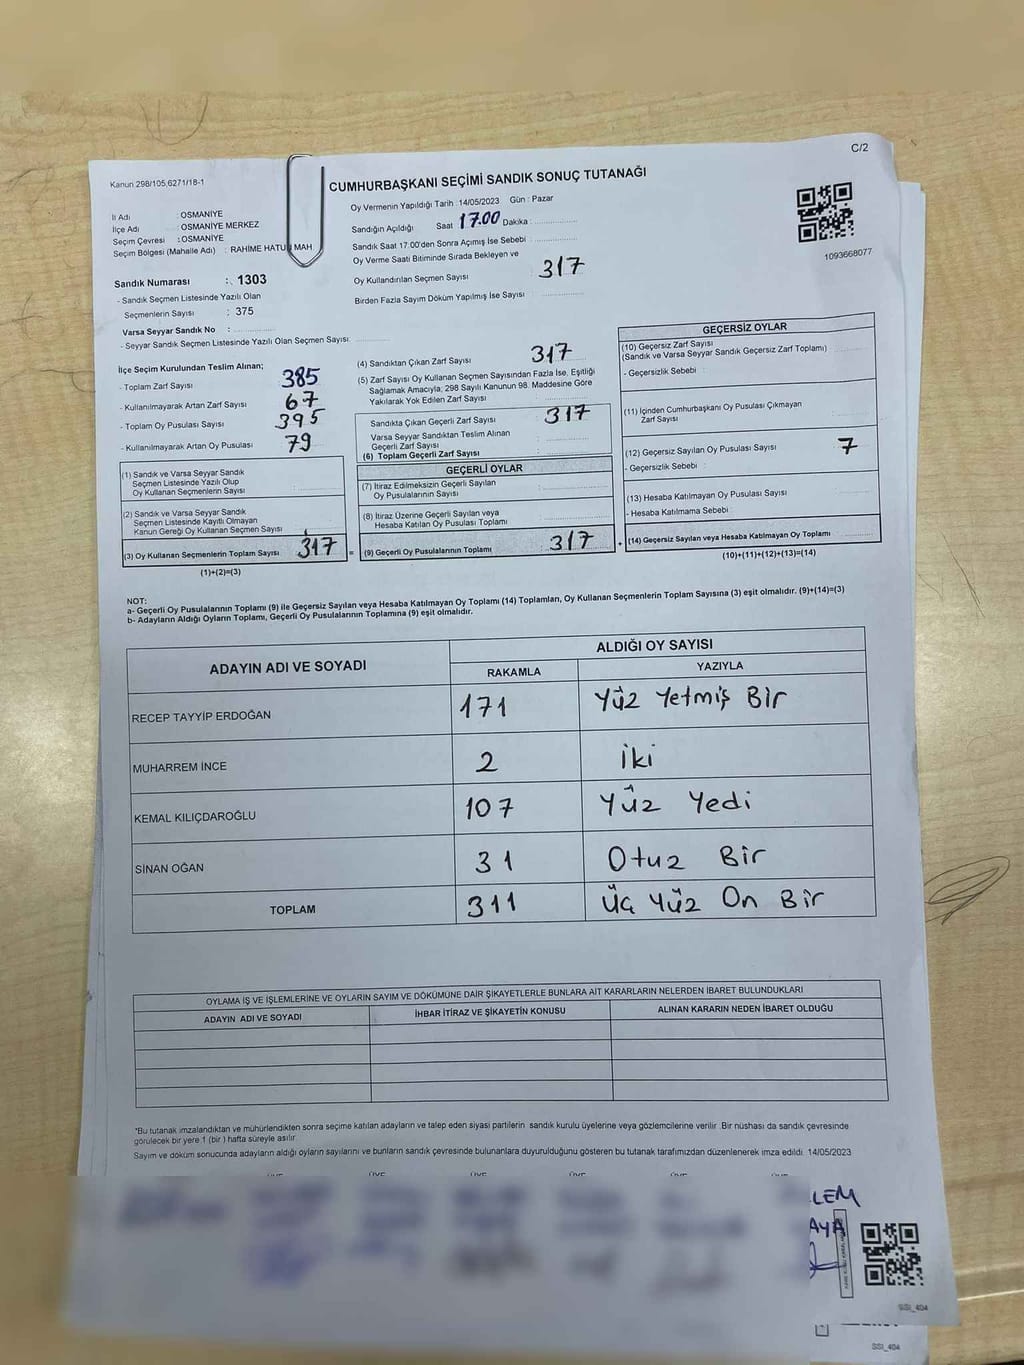 C/2
Kanun 298/105,6271/18-1
CUMHURBAŞKANI SEÇİMİ SANDIK SONUÇ TUTANAĞI
İl Adı : OSMANİYE
İlçe Adı : OSMANİYE MERKEZ
Seçim Çevresi : OSMANİYE
Seçim Bölgesi (Mahalle Adı) : RAHİME HATU MAH
Oy Vermenin Yapıldığı Tarih :14/05/2023 Gün : Pazar
Sandığın Açıldığı Saat 17.00 Dakika :
Sandık Saat 17:00'den Sonra Açımış İse Sebebi :
Oy Verme Saati Bitiminde Sırada Bekleyen ve
Oy Kullandırılan Seçmen Sayısı 317
Birden Fazla Sayım Döküm Yapılmış İse Sayısı :
1093668077
Sandık Numarası : 1303
- Sandık Seçmen Listesinde Yazılı Olan
Seçmenlerin Sayısı : 375
Varsa Seyyar Sandık No :
- Seyyar Sandık Seçmen Listesinde Yazılı Olan Seçmen Sayısı:
İlçe Seçim Kurulundan Teslim Alınan;
- Toplam Zarf Sayısı 385
- Kullanılmayarak Artan Zarf Sayısı 67
- Toplam Oy Pusulası Sayısı 395
- Kullanılmayarak Artan Oy Pusulası 79
(1) Sandık ve Varsa Seyyar Sandık
Seçmen Listesinde Yazılı Olup
Oy Kullanan Seçmenlerin Sayısı
(2) Sandık ve Varsa Seyyar Sandık
Seçmen Listesinde Kayıtlı Olmayan
Kanun Gereği Oy Kullanan Seçmen Sayısı :
(3) Oy Kullanan Seçmenlerin Toplam Sayısı 317 =
(1)+(2)=(3)
(4) Sandıktan Çıkan Zarf Sayısı 317
(5) Zarf Sayısı Oy Kullanan Seçmen Sayısından Fazla İse, Eşitliği
Sağlamak Amacıyla; 298 Sayılı Kanunun 98. Maddesine Göre
Yakılarak Yok Edilen Zarf Sayısı :
Sandıkta Çıkan Geçerli Zarf Sayısı 317
Varsa Seyyar Sandıktan Teslim Alınan
Geçerli Zarf Sayısı :
(6) Toplam Geçerli Zarf Sayısı :
GEÇERLİ OYLAR
(7) İtiraz Edilmeksizin Geçerli Sayılan
Oy Pusulalarının Sayısı :
(8) İtiraz Üzerine Geçerli Sayılan veya
Hesaba Katılan Oy Pusulası Toplamı :
(9) Geçerli Oy Pusulalarının Toplamı 317 +
GEÇERSİZ OYLAR
(10) Geçersiz Zarf Sayısı
(Sandık ve Varsa Seyyar Sandık Geçersiz Zarf Toplamı)
- Geçersizlik Sebebi :
(11) İçinden Cumhurbaşkanı Oy Pusulası Çıkmayan
Zarf Sayısı
(12) Geçersiz Sayılan Oy Pusulası Sayısı 7
- Geçersizlik Sebebi :
(13) Hesaba Katılmayan Oy Pusulası Sayısı
- Hesaba Katılmama Sebebi :
(14) Geçersiz Sayılan veya Hesaba Katılmayan Oy Toplamı
(10)+(11)+(12)+(13)=(14)
NOT:
a- Geçerli Oy Pusulalarının Toplamı (9) ile Geçersiz Sayılan veya Hesaba Katılmayan Oy Toplamı (14) Toplamları, Oy Kullanan Seçmenlerin Toplam Sayısına (3) eşit olmalıdır. (9)+(14)=(3)
b- Adayların Aldığı Oyların Toplamı, Geçerli Oy Pusulalarının Toplamına (9) eşit olmalıdır.
ADAYIN ADI VE SOYADI ALDIĞI OY SAYISI
RAKAMLA YAZIYLA
RECEP TAYYİP ERDOĞAN 171 Yüz Yetmiş Bir
MUHARREM İNCE 2 iki
KEMAL KILIÇDAROĞLU 107 Yüz Yedi
SİNAN OĞAN 31 Otuz Bir
TOPLAM 311 Üç Yüz On Bir
OYLAMA İŞ VE İŞLEMLERİNE VE OYLARIN SAYIM VE DÖKÜMÜNE DAİR ŞİKAYETLERLE BUNLARA AİT KARARLARIN NELERDEN İBARET BULUNDUKLARI
ADAYIN ADI VE SOYADI İHBAR İTİRAZ VE ŞİKAYETİN KONUSU ALINAN KARARIN NEDEN İBARET OLDUĞU
*Bu tutanak imzalandıktan ve mühürlendikten sonra seçime katılan adayların ve talep eden siyasi partilerin sandık kurulu üyelerine veya gözlemcilerine verilir .Bir nüshası da sandık çevresinde
görülecek bir yere 1 (bir ) hafta süreyle asılır.
Sayım ve döküm sonucunda adayların aldığı oyların sayılarını ve bunların sandık çevresinde bulunanlara duyurulduğunu gösteren bu tutanak tarafımızdan düzenlenerek imza edildi. 14/05/2023
LEM
AYA
SSI_404
SSI_404